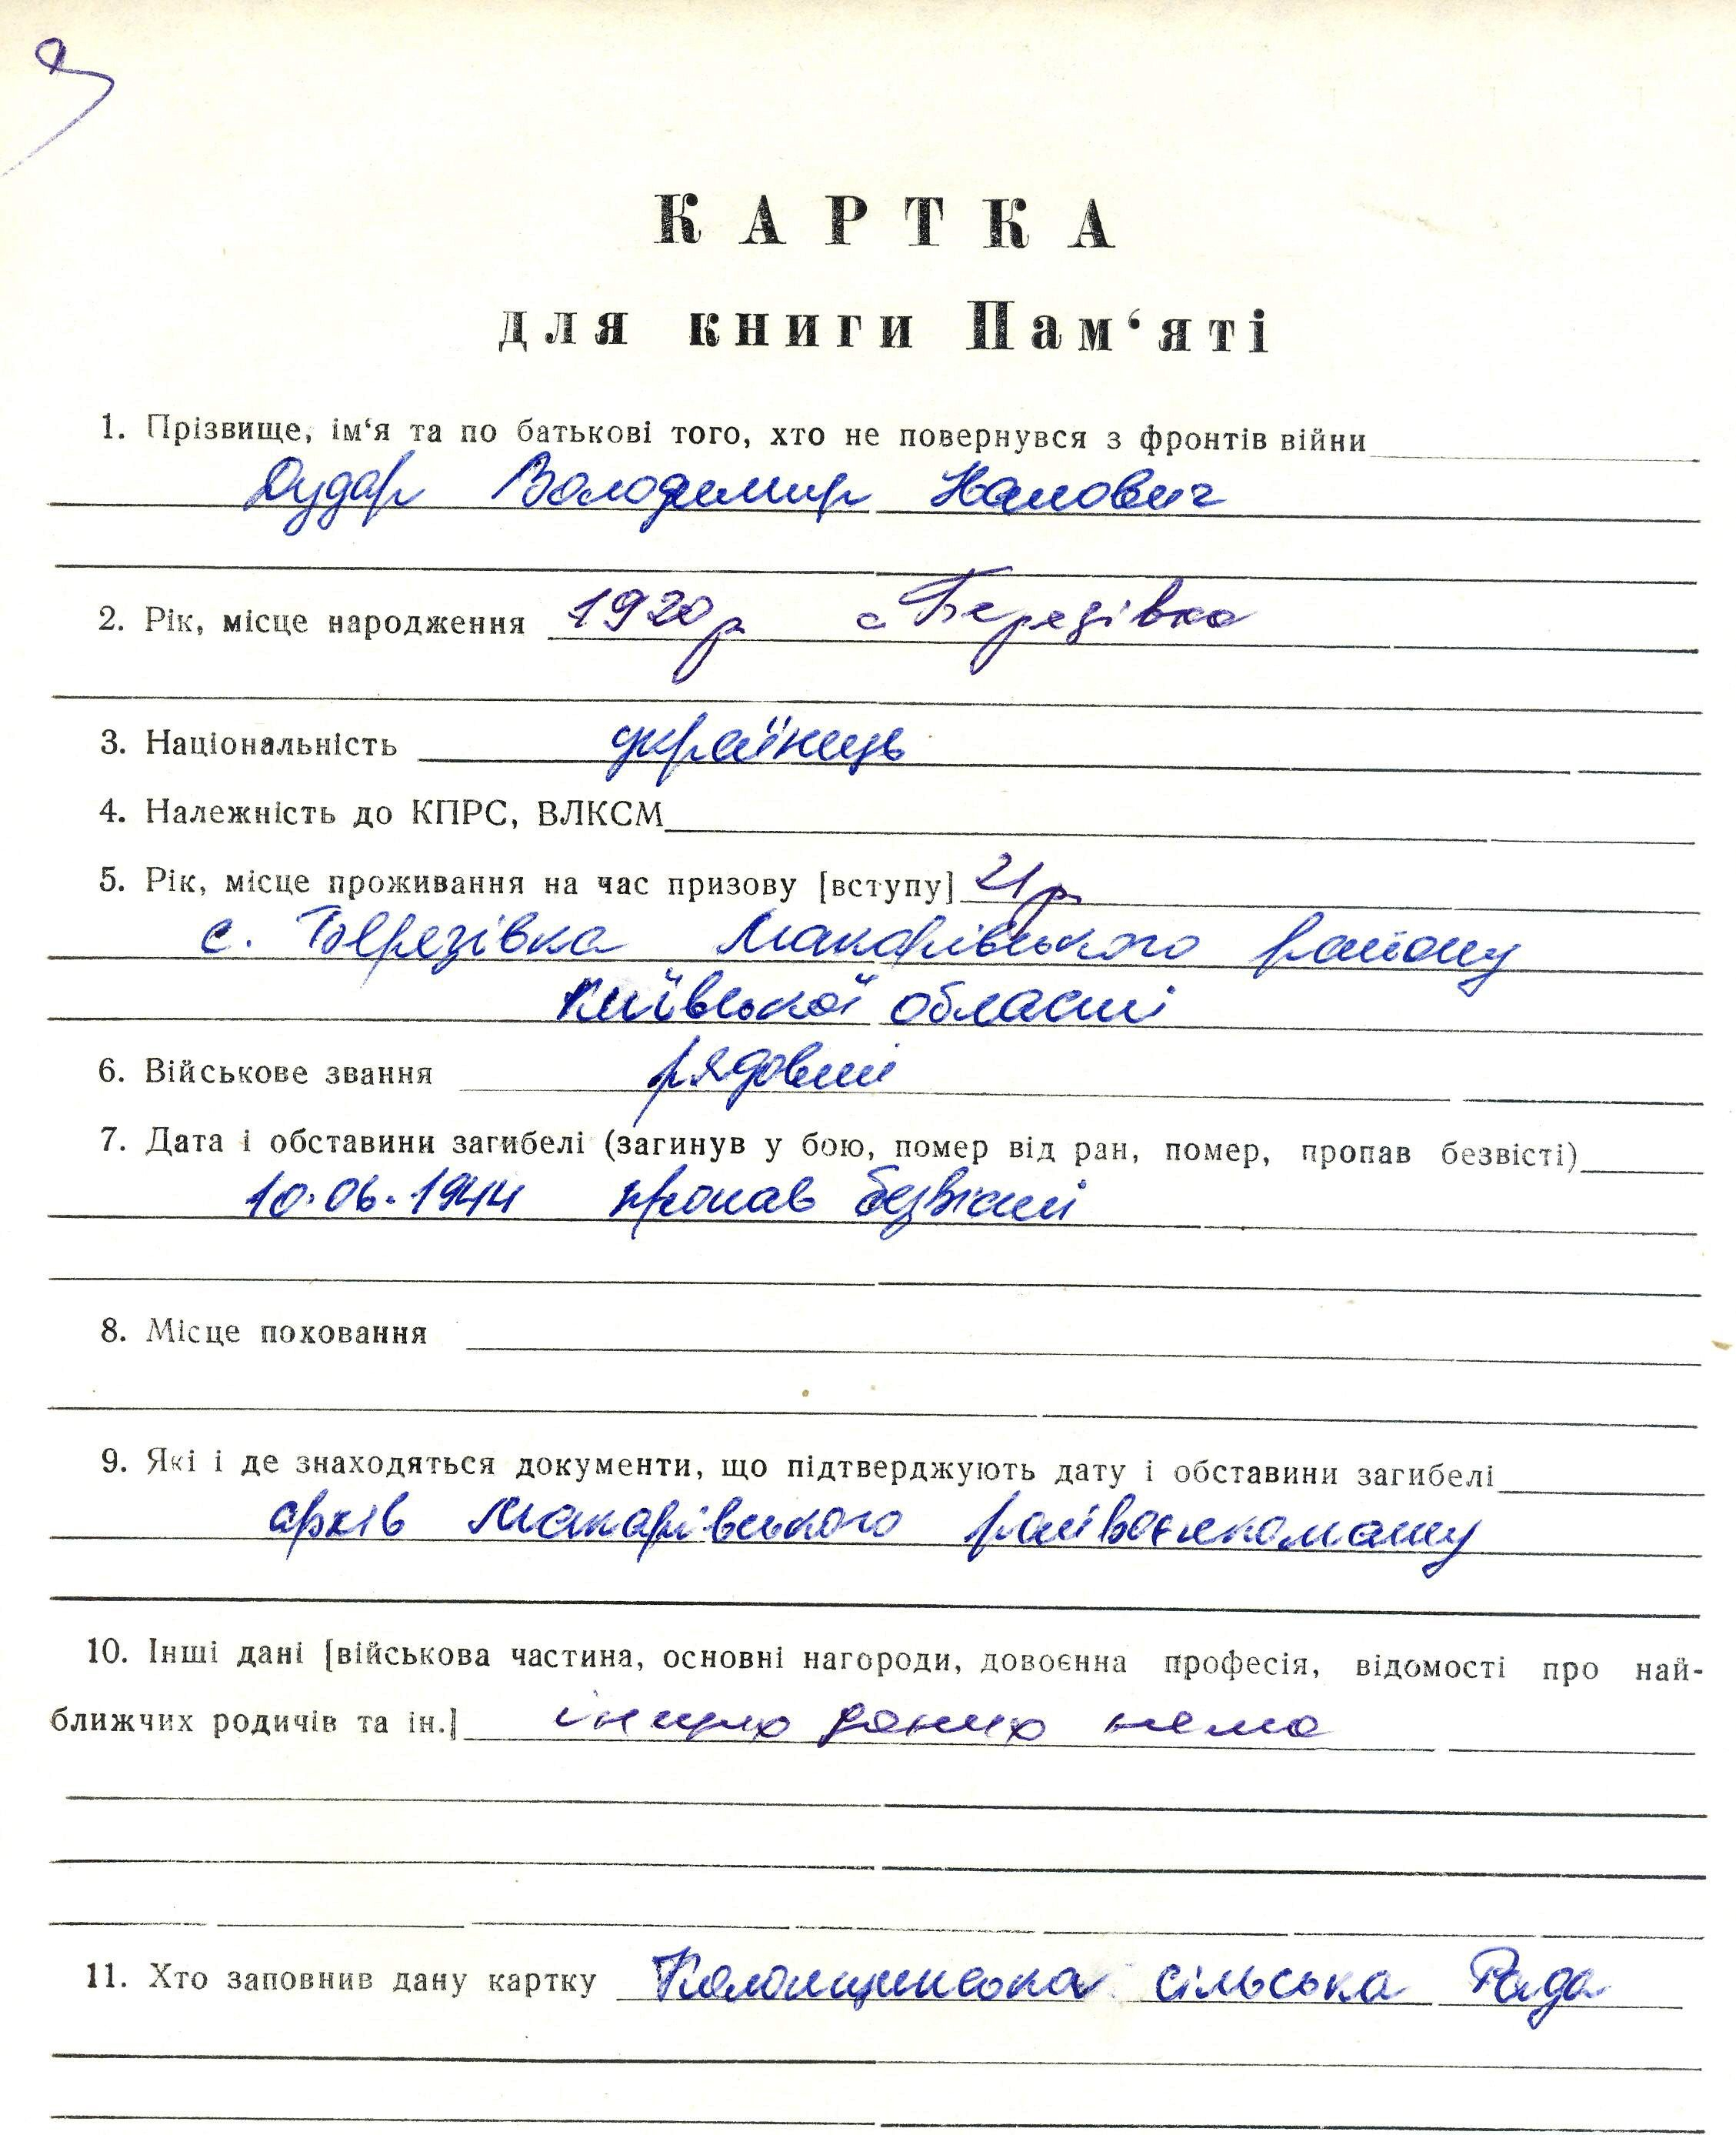 КАРТКА
для книги Пам‘яті
1. Прізвище, ім‘я та по батькові того, хто не повернувся з фронтів війни
Дудар Володимир
2. Рік, місце народження 1920 р с Березівка
3. Національність українець
4. Належність до КПРС, ВЛКСМ
5. Рік, місце проживання на час призову [вступу] 21 р
с. Березівка Макарівського району
Київської області
6. Військове звання рядовий
7. Дата і обставини загибелі (загинув у бою, помер від ран, помер, пропав безвісті)
10.06.1944 пропав безвісті
8. Місце поховання
9. Які і де знаходяться документи, що підтверджують дату і обставини загибелі
архів Макарівського райвоєнкомату
10. Інші дані [військова частина, основні нагороди, довоєнна професія, відомості про най-
ближчих родичів та ін.] інших даних нема
11. Хто заповнив дану картку Колонщинська сільська Рада